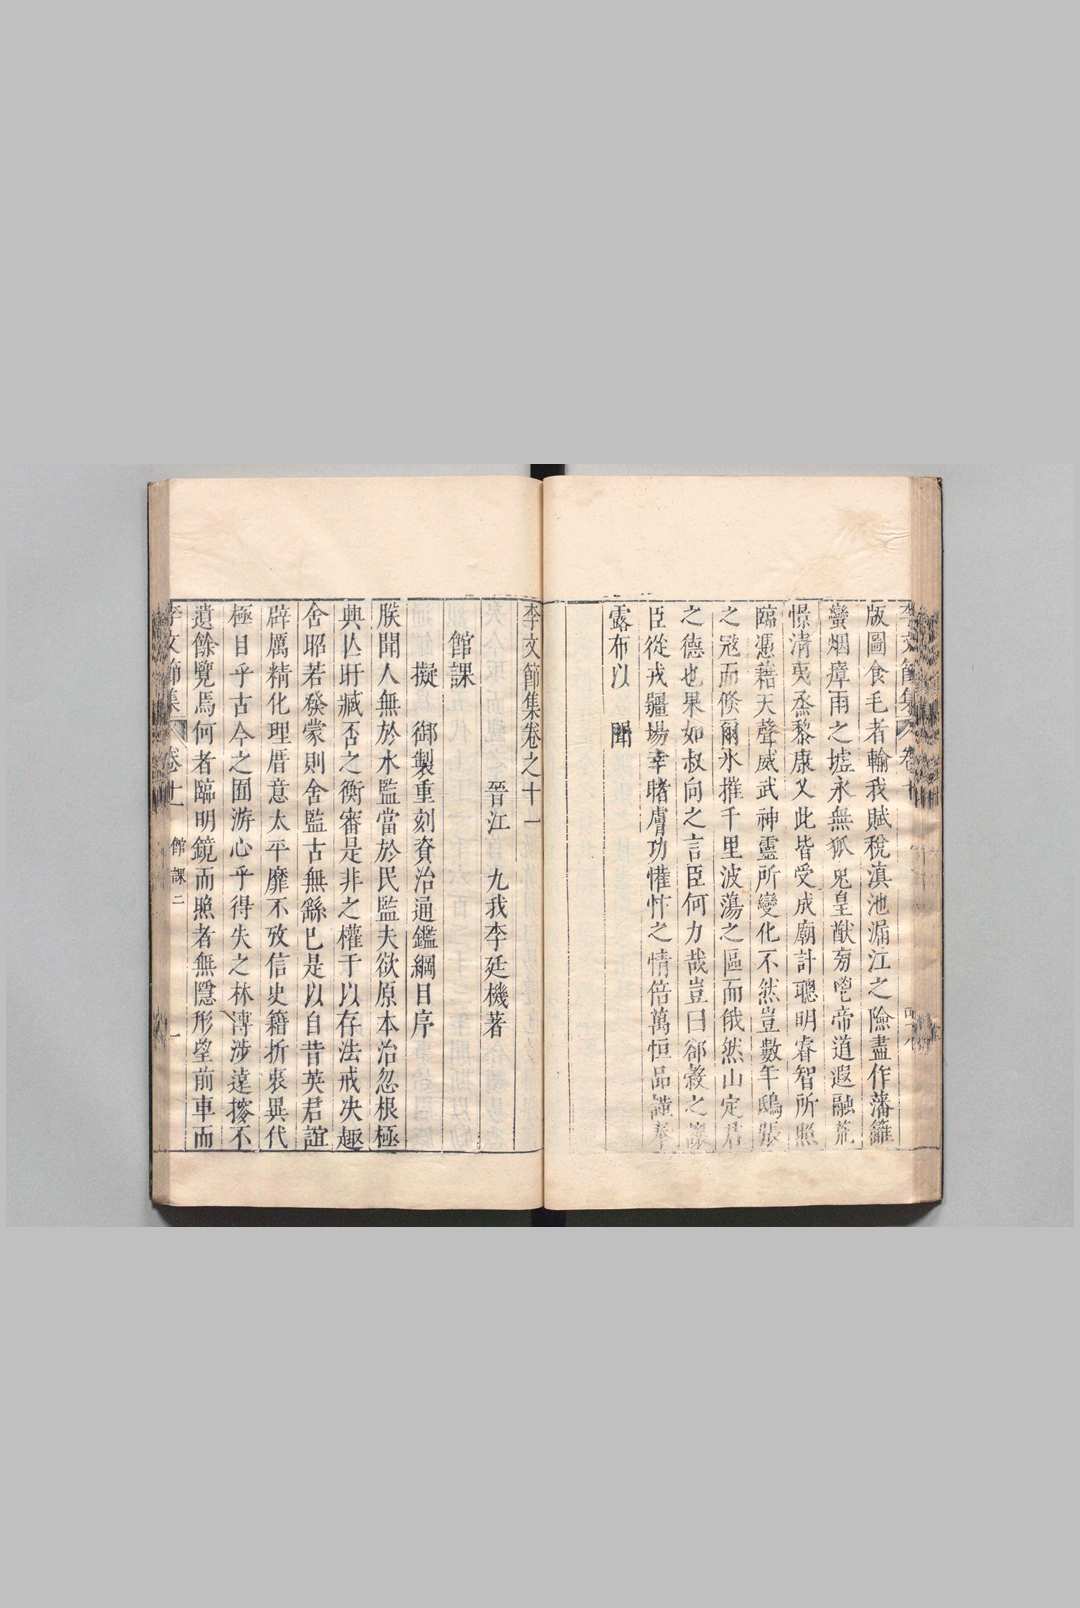 版圖食毛者輸我賦稅滇池漏江之險盡作藩籬
蠻烟瘴雨之墟永無狐兎皇猷旁鬯帝道遐融荒
憬清夷烝黎康乂此皆受成廟計聰明睿智所照
臨憑藉天聲威武神靈所變化不然豈數年鴟張
之冦而倐爾氷摧千里波蕩之區而俄然山定君
之德也果如叔向之言臣何力哉豈曰郤縠之讓
臣從戎疆場幸睹膚功懽忭之情倍萬恒品謹奉
露布以 聞
李文節集卷之十一
晉江 九我李廷機著
館課
擬 御製重刻資治通鑑綱目序
朕聞人無於水監當於民監夫欲原本治忽根極
興亾玨臧否之衡審是非之權于以存法戒决趣
舍昭若發蒙則舍監古無繇巳是以自昔英君誼
辟厲精化理厝意太平靡不攷信史籍折衷異代
極目乎古今之囿游心乎得失之林漙涉遠擥不
遺餘覽焉何者臨明鏡而照者無隱形望前車而
李文節集 卷十一 館課二 一